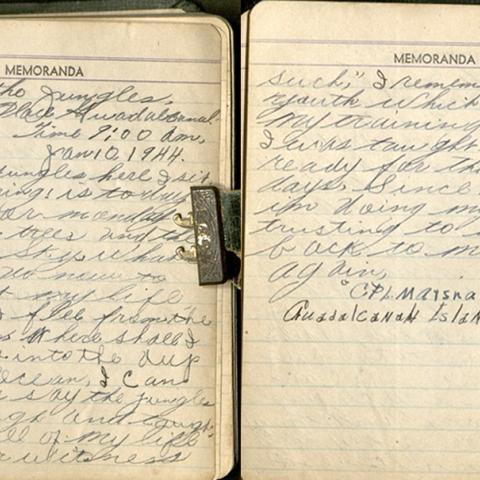 MEMORANDA
the Jungles,
Place Guadalcanal
Time 9:00 am,
Jan 10, 1944.
jungles here I sit,
is today
or monday
trees and the
sky
no new to
my life
I flee from the
Where shall I
into the dup
Ocean, I can
say the jungles
and
all of my life
witness
MEMORANDA
such," I remem
youth which
my training
I was taught
ready for th
days, Since
im doing my
trusting to
back to m
again,
"CPL Marsha
Guadalcanal Islan